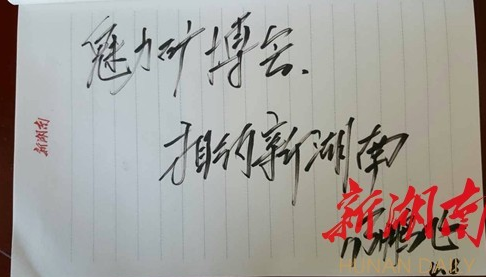 魅力矿博会.
相约新湖南
新湖南
新湖南
HUNAN DAILY